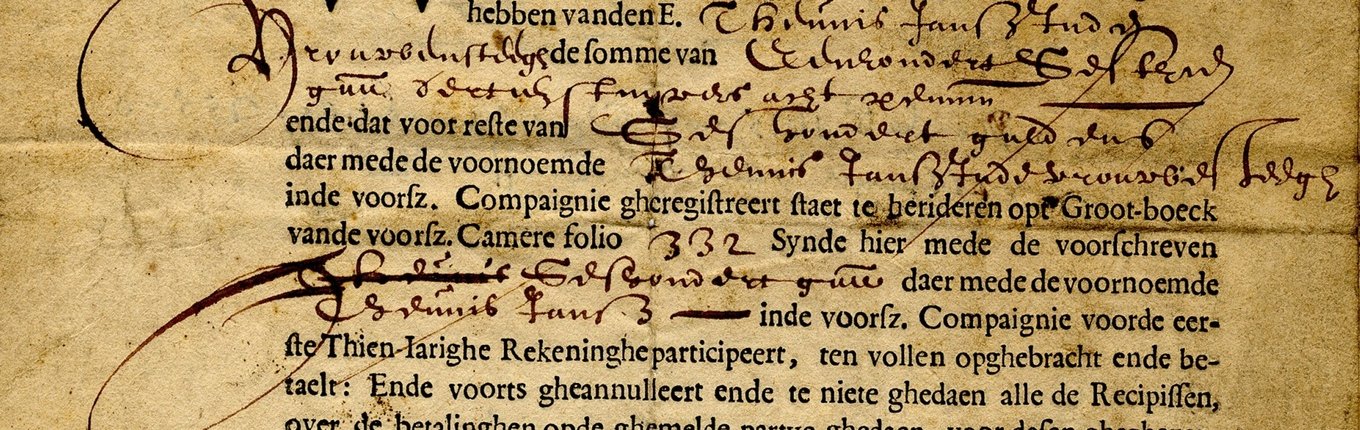 hebben vanden E. Theunis Jansz Inde
Vrouwensteegh de somme van Eenhondert Sestich
gūū dertich stuyvers acht penn
ende dat voor reste van Ses hondert guldens
daer mede de voornoemde Theunis Jansz Inde vrouwe steegh
inde voorsz. Compaignie gheregistreert staet te berideren opt Groot-boeck
vande voorsz. Camere folio 332 Synde hier mede de voorschreven
Seshondert gūū daer mede de voornoemde
Theunis Jansz inde voorsz. Compaignie voorde eer-
ste Thien Iarighe Rekeninghe participeert, ten vollen opghebracht ende be-
taelt: Ende voorts gheannulleert ende te niete ghedaen alle de Recipissen,
over de betalinghen opde ghemelde partye ghedaen, voor desen